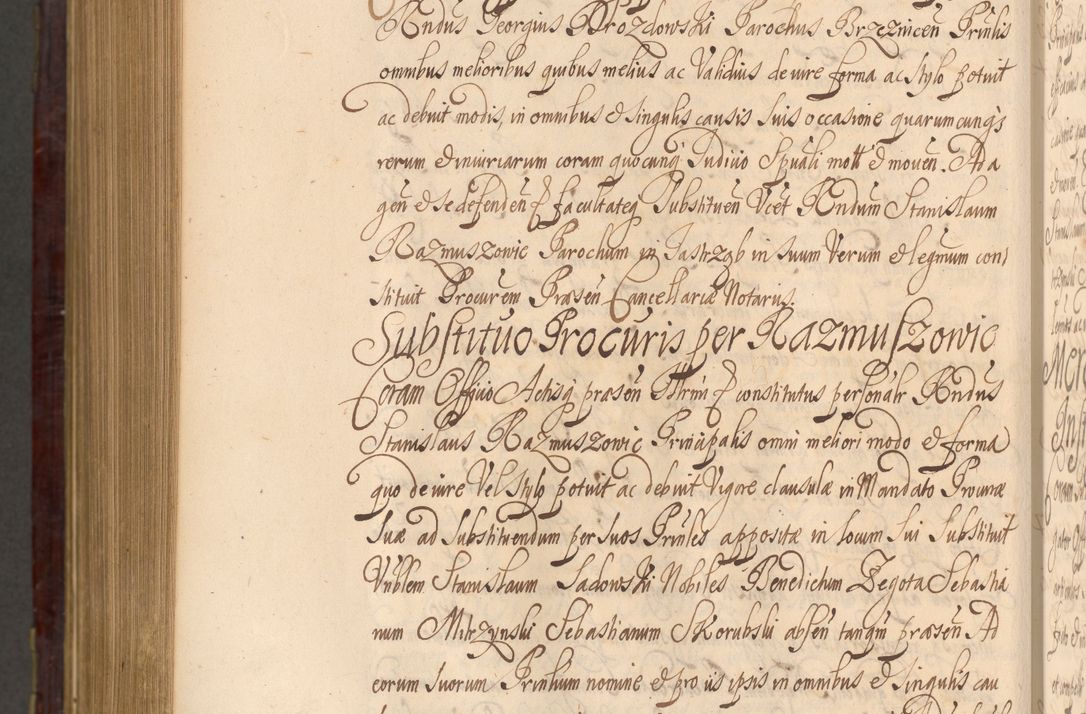 Rndus Georgius Drozdowski Parochus Brzeznicen Prinlis
omnibus melioribus quibus melius ac Validius de iure forma ac stylo potuit
ac debuit modis, in omnibus et singulis causis suis occasione quarumcunqs
rerum et iniuriarum coram quocunq Iudiuo Spuali mott et moven. Ad a
gen et se defenden facultateq Substituen Vcet Rndum Stanislaum
Razmuszowic Parochum in Jastrząb in suum Verum et legnum con
stituit Procurem Præsen Cancellariæ Notarius.
Substituo Procuris per Razmuszowic
Coram Offino Actisq præsen constitutus personalr Rndus
Stanislaus Razmuszowic Principalis omni meliori modo et forma
quo de iure Vel stylo potuit ac debuit Vigore clausulæ in Mandato Procuræ
suæ ad substituendum per suos Prinles appositæ in locum sui substituit
Vnblem Stanislaum Sadowski Nobiles Benedictum Zegota Sebastia
num Mitrzynski Sebastianum Skorubski absen tanqm præsen. Ad
eorum suorum Prinlium nomine et pro iis ipsis in omnibus et singulis cau